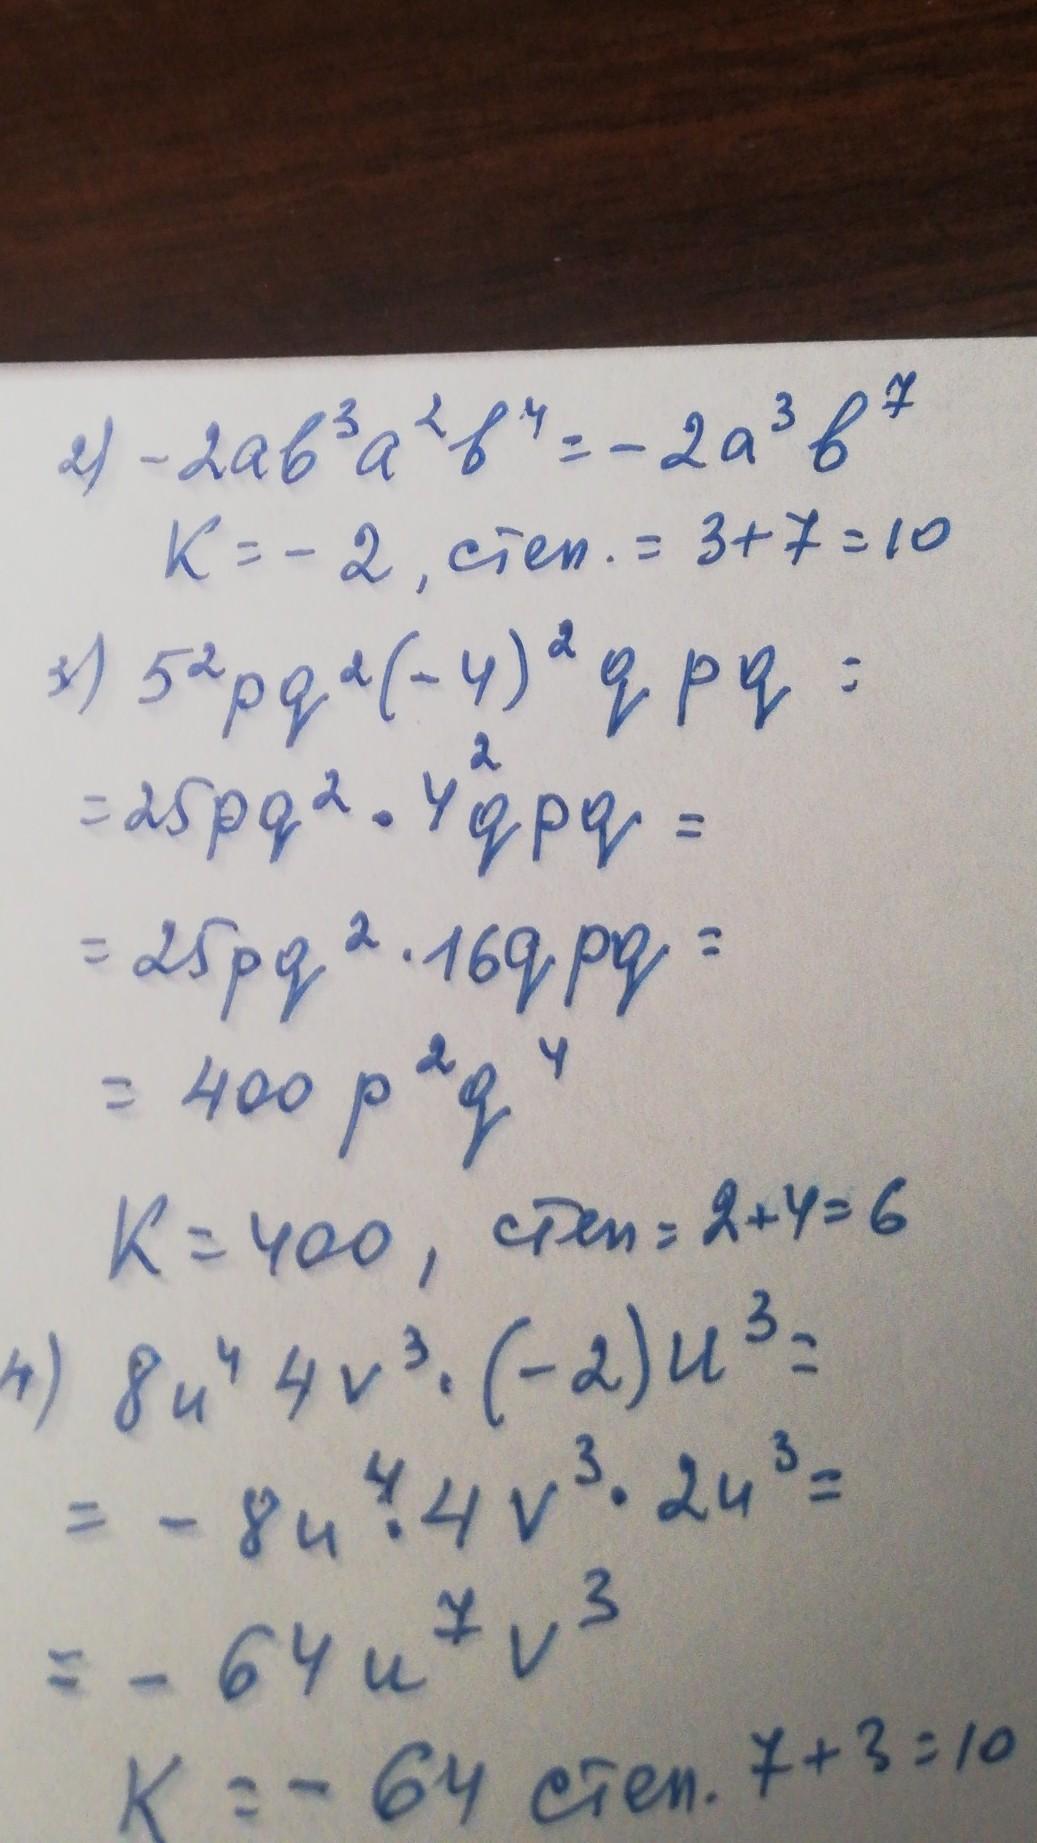 2) -2ab³a²b⁴ = -2a³b⁷
K = -2, степ. = 3+7=10
3) 5²pq²(-4)²qpq =
= 25pq² · 4²qpq =
= 25pq² · 16qpq =
= 400p²q⁴
K = 400, степ = 2+4=6
4) 8u⁴4v³ · (-2)u³ =
= - 8u⁴ · 4v³ · 2u³ =
= - 64u⁷v³
K = - 64 степ. 7+3=10